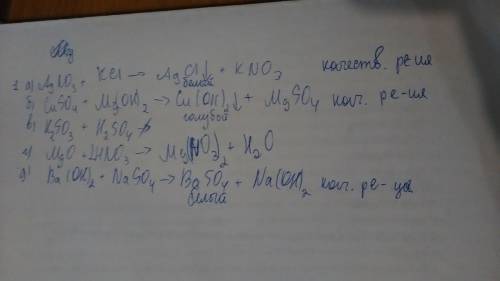 1 а) AgNO₃ + KCl → AgCl↓ + KNO₃ качеств. ре-ия
белый
б) CuSO₄ + Mg(OH)₂ → Cu(OH)₂↓ + MgSO₄ кач. ре-ия
голубой
в) K₂SO₃ + H₂SO₄ ↛
г) MgO + 2HNO₃ → Mg(NO₃)₂ + H₂O
д) Ba(OH)₂ + NaSO₄ → BaSO₄ + Na(OH)₂ кач. ре-ия
белый